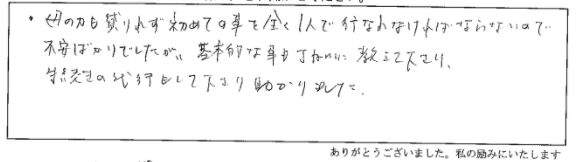 ・母の力も貸りれず初めての事を全く1人で行なわなければならないので
不安ばかりでしたが、基本的な事も丁ねいに教えて下さり、
手続きの代行もして下さり助かりました。
ありがとうございました。私の励みにいたします